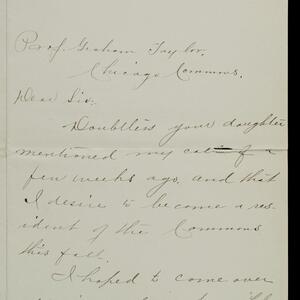 Prof. Graham Taylor.
Chicago Commons.
Dear Sir:
Doubtless your daughter
mentioned my call of a
few weeks ago, and that
I desire to become a res-
ident of the Commons
this fall.
I hoped to come over